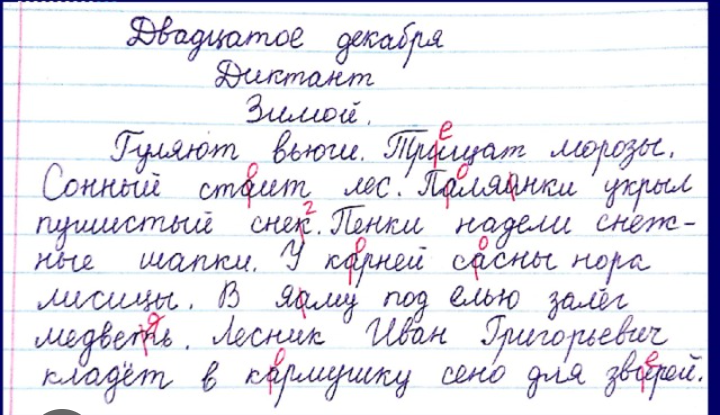 Двадцатое декабря
Диктант
Зимой.
Гуляют вьюги. Трищат морозы.
Сонный стаит лес. Паляинки укрыл
пушистый снек. Пенки надели снеж-
ные шапки. У карней сасны нора
лисицы. В Яаму под елью залёг
медветь. Лесник Иван Григорьевич
кладёт в кармушку сено для звирей.